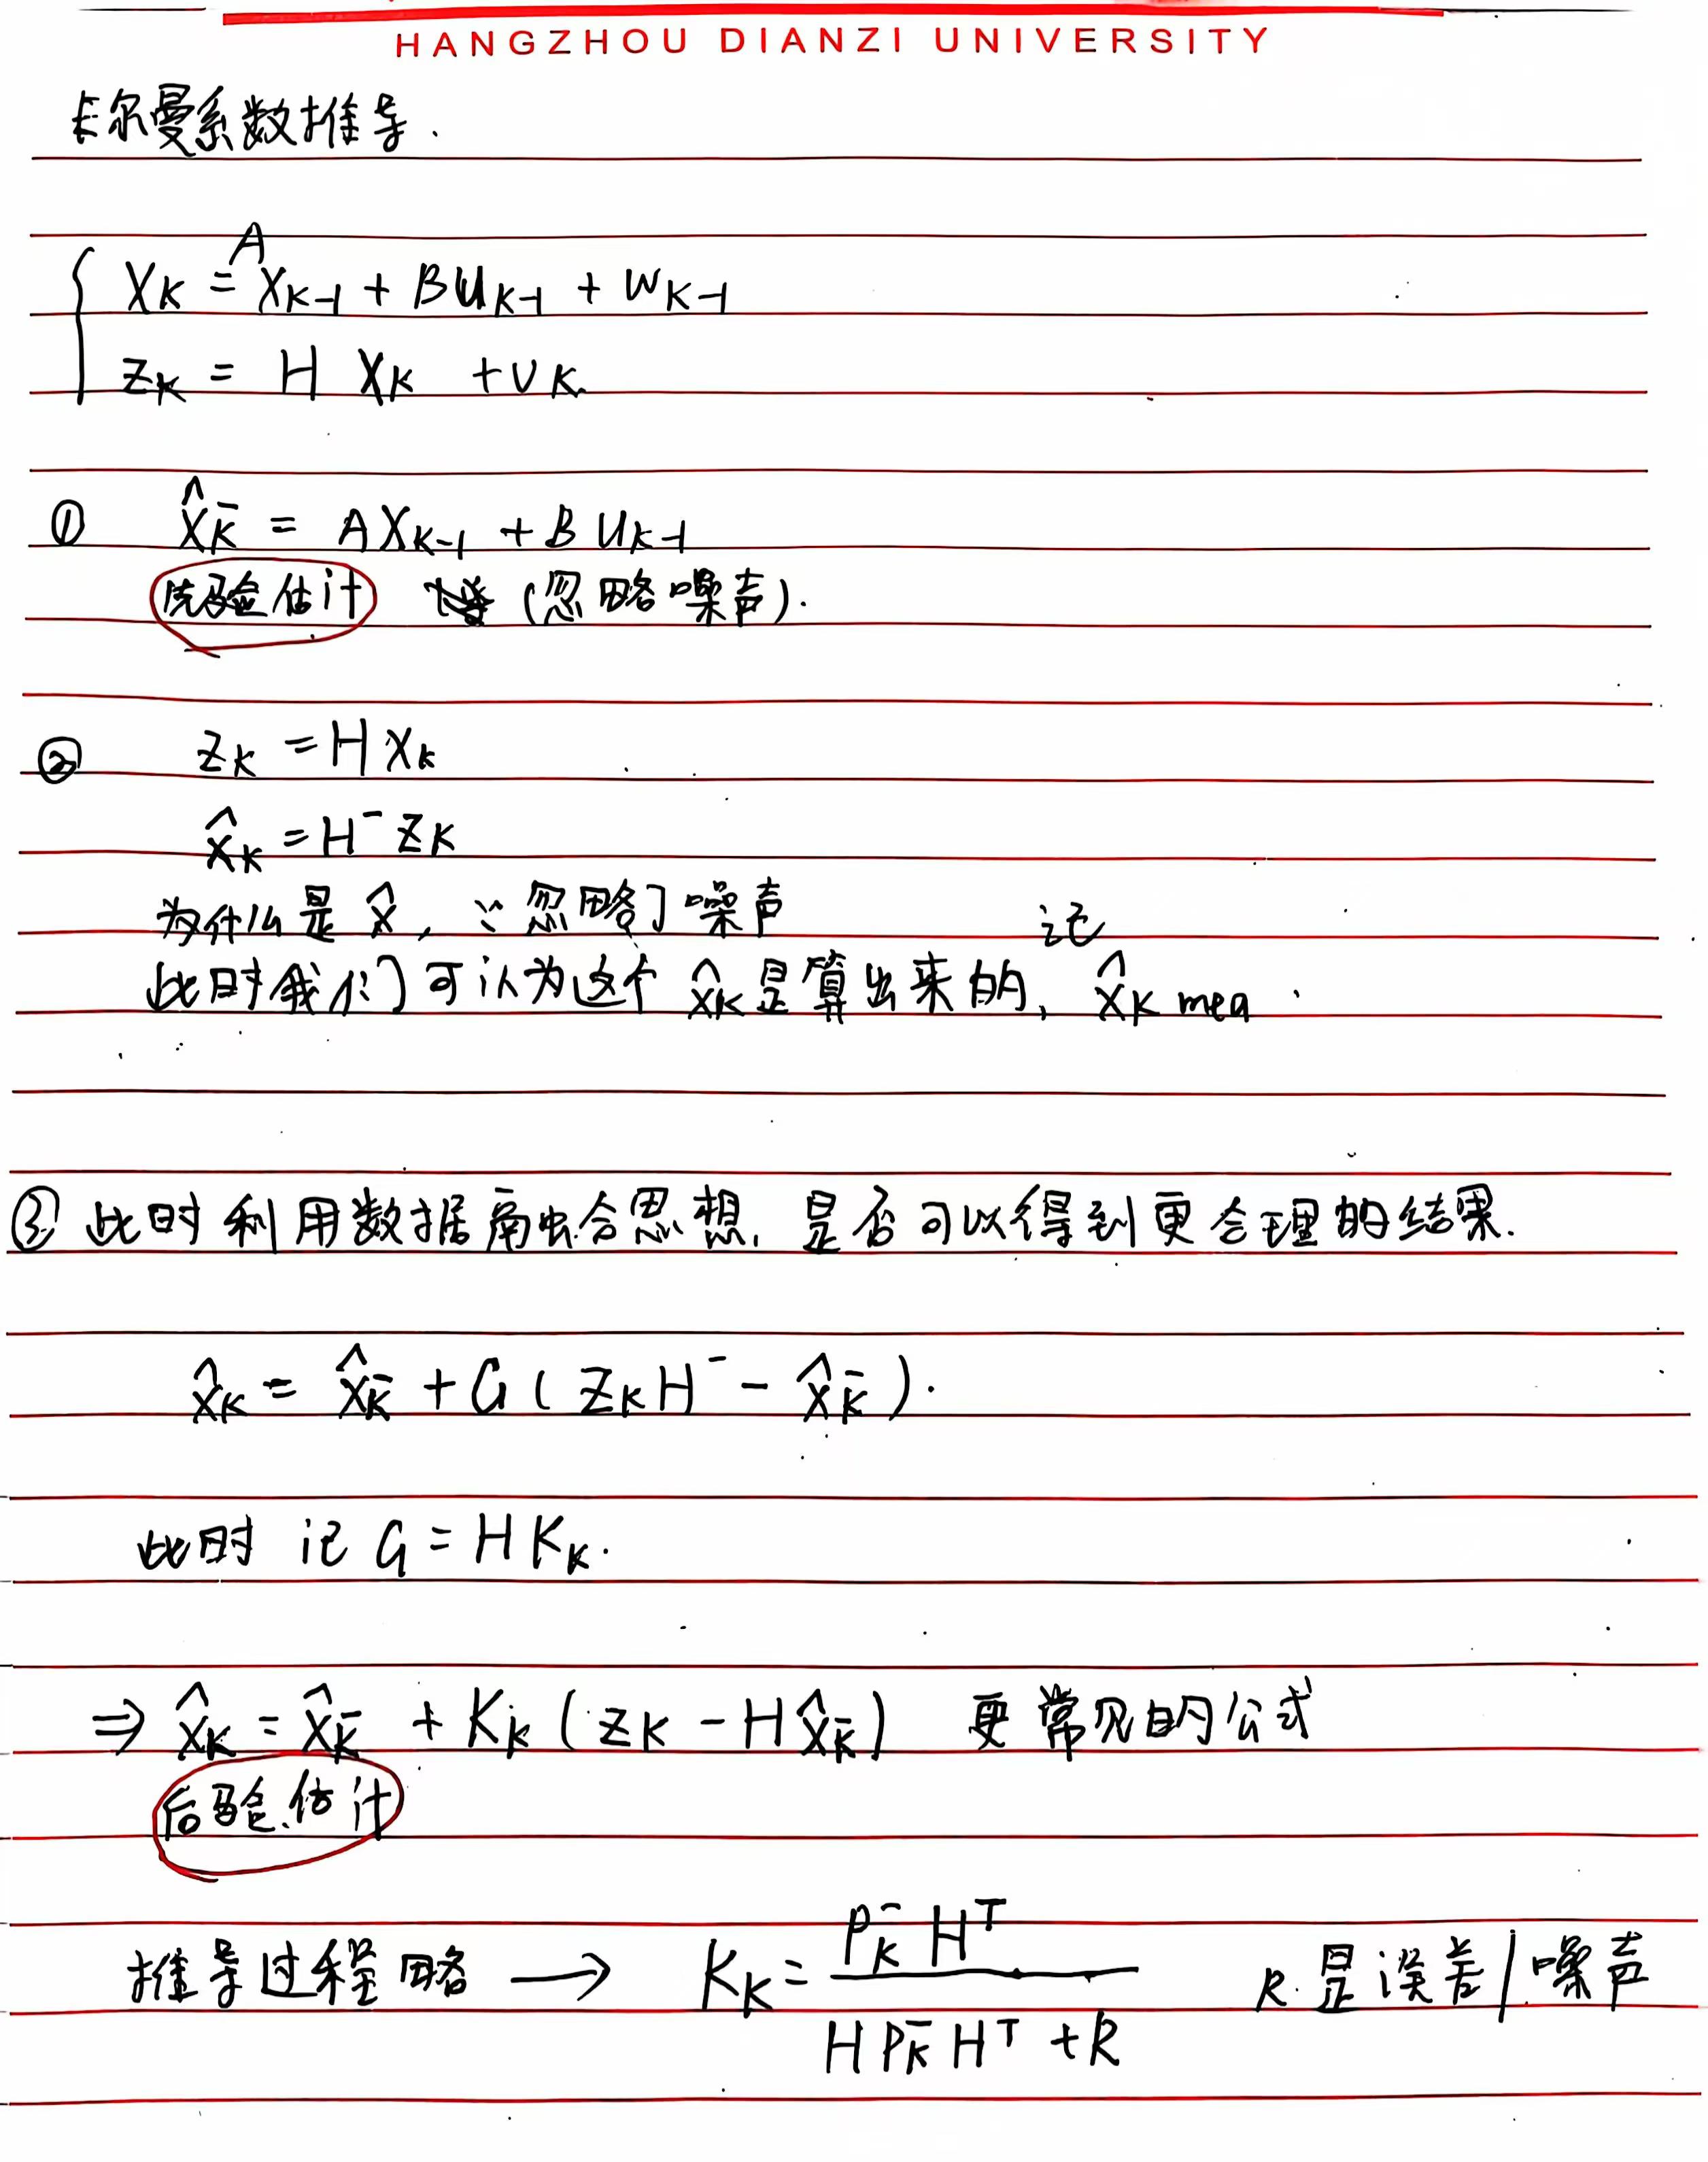 HANGZHOU DIANZI UNIVERSITY
卡尔曼系数推导.
A
Xk = Xk-1 + BUk-1 + Wk-1
Zk = H Xk + Vk.
① X̂k⁻ = AXk-1 + BUk-1
先验估计 (忽略噪声).
② Zk = HXk
X̂k = H⁻Zk
为什么是 X̂, ∵忽略了噪声
记
此时我们可认为这个 X̂k是算出来的, X̂k mea.
③ 此时利用数据融合思想, 是否可以得到更合理的结果.
X̂k = X̂k⁻ + G(ZkH⁻ - X̂k⁻).
此时 记 G = HKk.
⇒ X̂k = X̂k⁻ + Kk(Zk - HX̂k⁻) 更常见的公式
后验估计
推导过程略 → Kk = Pk⁻Hᵀ / HPk⁻Hᵀ + R R是误差/噪声